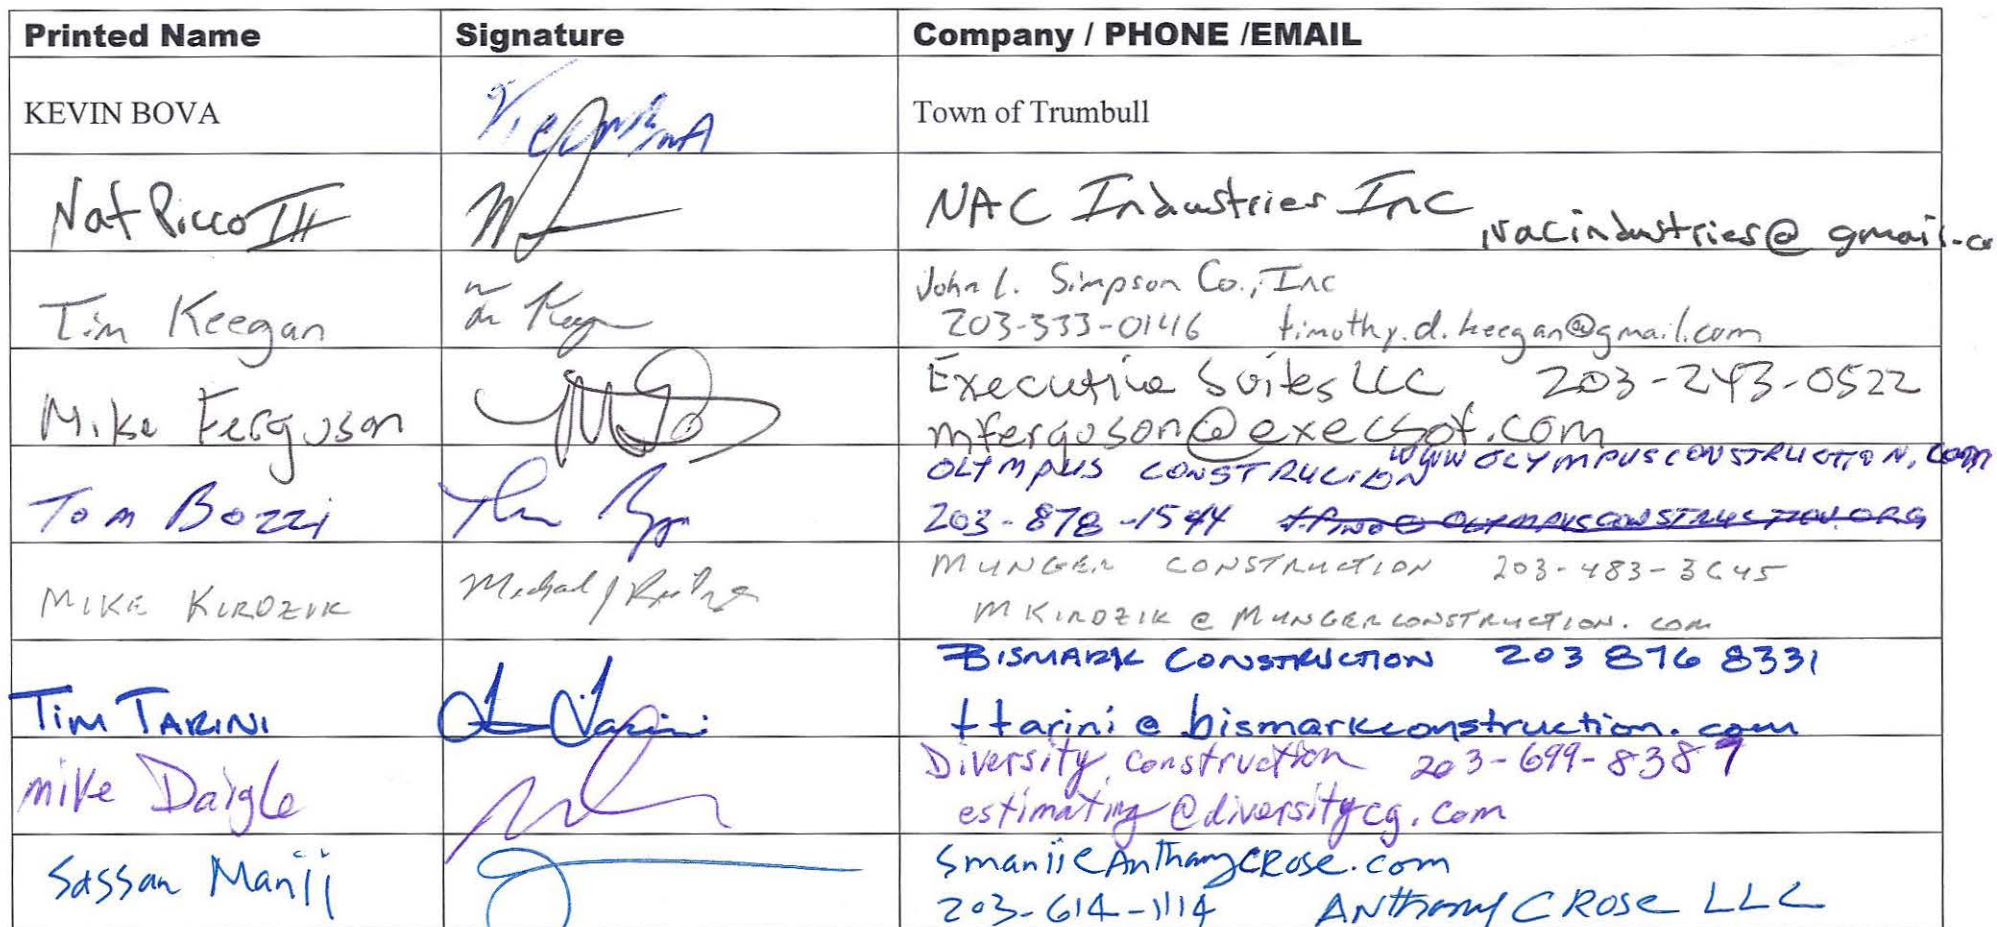 Printed Name Signature Company / PHONE /EMAIL
KEVIN BOVA Town of Trumbull
Nat Picco III NAC Industries Inc
Nacindustries@gmail.co
Tim Keegan
John L. Simpson Co., Inc
203-333-0146 timothy.d.keegan@gmail.com
Mike Ferguson
Executive Suites LLC 203-243-0522
mferguson@execsof.com
Tom Bozzi
OLYMPUS CONSTRUCION WWW OLYMPUSCONSTRUCTION.COM
203-878-1544
MIKE KIROZIK
MUNGER CONSTRUCTION 203-483-3645
MKIROZIK@MUNGERCONSTRUCTION.COM
TIM TARINI Tim Tarini
BISMARK CONSTRUCTION 203 876 8331
ttarini@bismarkconstruction.com
mike Daigle
Diversity construction 203-699-8389
estimating@diversitycg.com
Sassan Manii
Smanii@AnthonyCRose.com
203-614-1114 ANthony C ROSE LLC